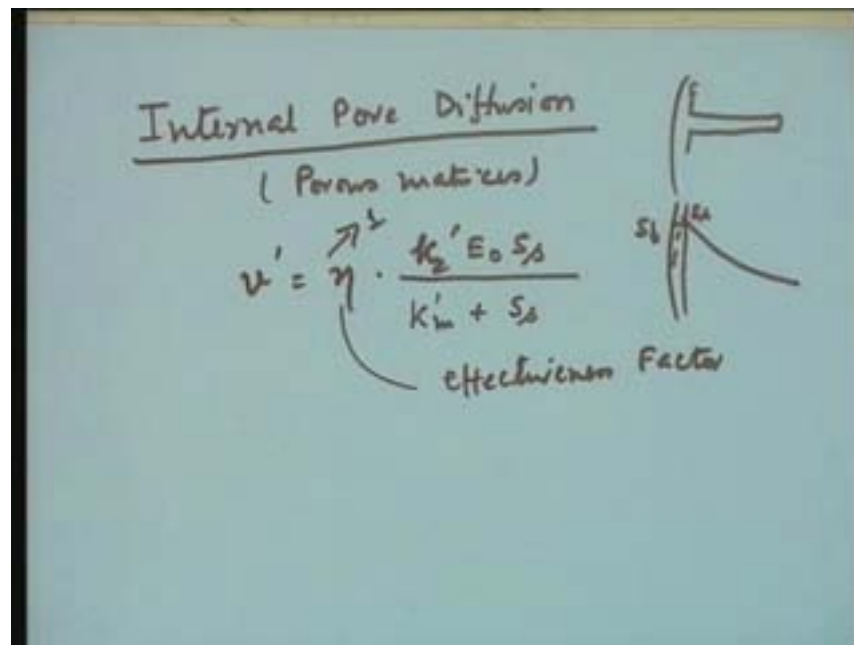 Internal Pore Diffusion
(Porous matrices)
v' = η · k₂' E₀ Sₛ / K'ₘ + Sₛ
1
Effectiveness Factor
S_b